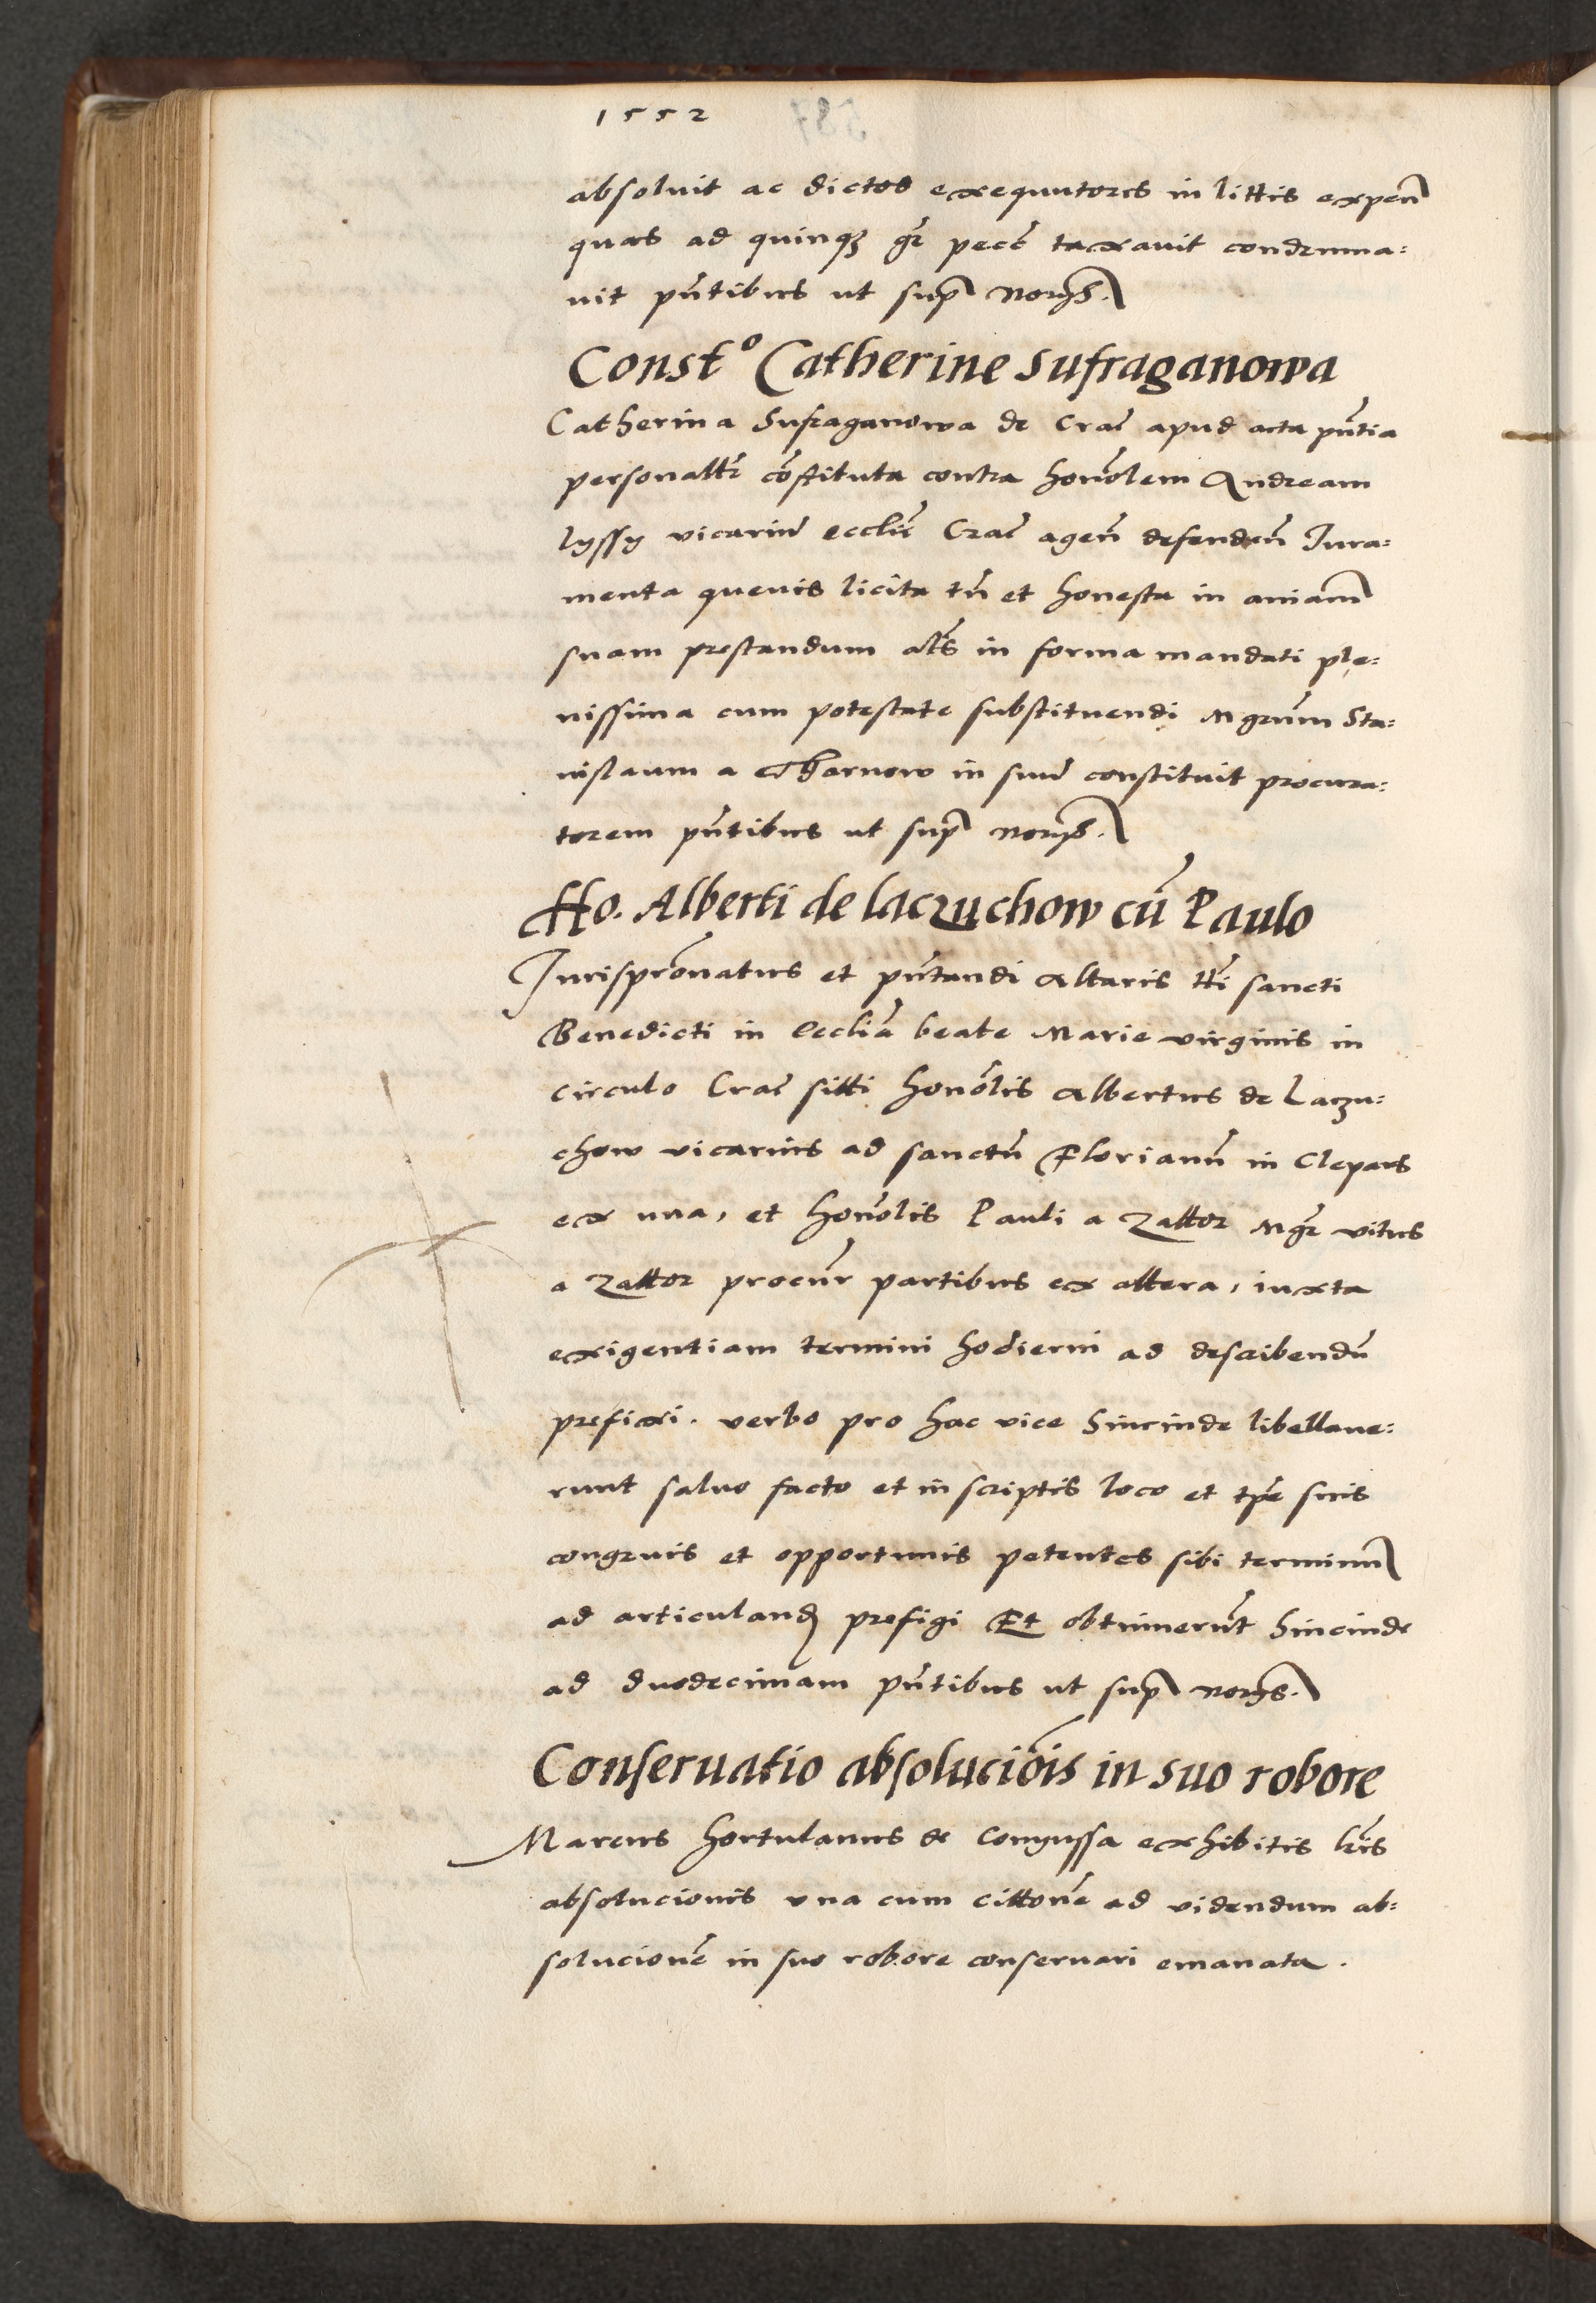 1552
absoluit ac dictos exequutores in littis expen̄
quas ad quinqꝫ gr̄ pecc̄ taxauit condemna:
uit pn̄tibus ut sup̄ norijs.
Constᵒ Catherine Sufraganowa
Catherina Sufraganowa de Crac̄ apud acta pn̄tia
personalr̄ cōstituta contra honōlem Andream
lyssy vicariū ecclīe Crac̄ agen̄ defenden̄ Iura:
menta queuis licita tn̄ et honesta in aniam̄
suam prestandum als̄ in forma mandati ple:
nissima cum potestate substituendi Mgrūm Sta:
nislaum a Tharnow in suū constituit procura:
torem pn̄tibus ut sup̄ norijs.
Ho. Alberti de laczuchow cū Paulo
Jurisprōnatus et pn̄tandi Altaris tti̅ sancti
Benedicti in Eccliā beate Marie virginis in
circulo Crac̄ sitti honōlis Albertus de Laczu:
chow vicarius ad sanctū Florianū in Clepars
ex una, et honōlis Pauli a Zattor Mgr̄ vitus
a Zattor procūr partibus ex altera, iuxta
exigentiam termini hodierni ad describendū
prefixi. verbo pro hac vice hincinde libellaue:
runt saluo facto et in scriptis loco et tp̄e suis
congruis et opportunis petentes sibi terminū
ad articuland prefigi Et obtinuerūt hincinde
ad duodecimam pn̄tibus ut sup̄ norijs.
Conseruatio absoluciōis in suo robore
Marcus hortulanus de Congussa exhibitis lr̄is
absolucionis una cum cittonē ad videndum ab:
solucionē in suo robore conseruari emanata.